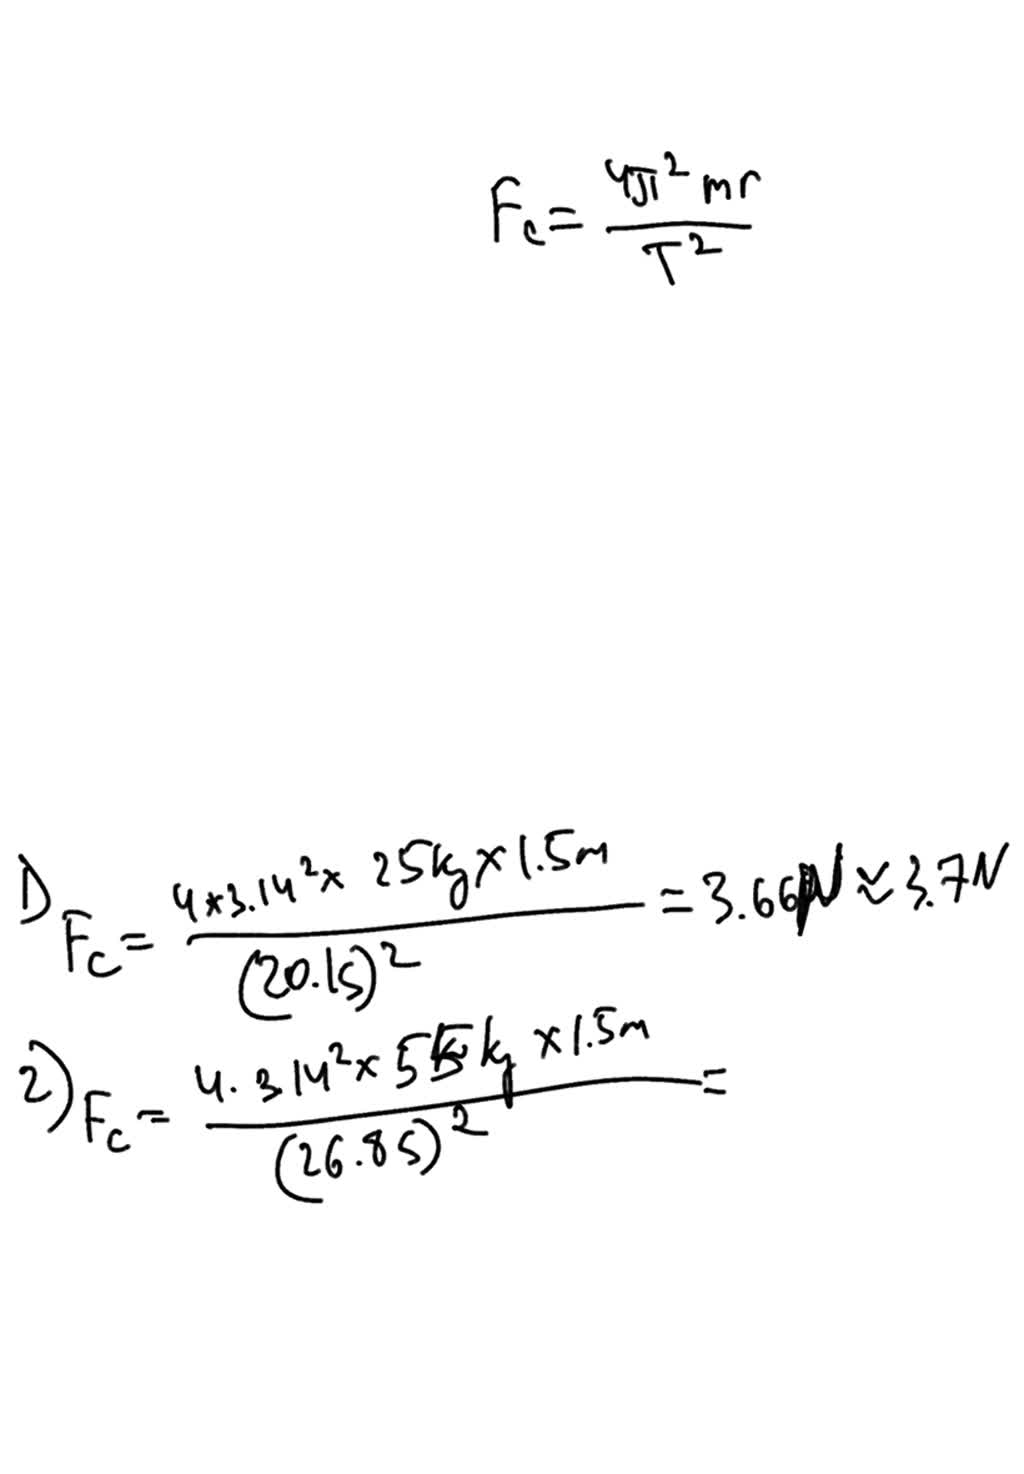 Fc = 4π² mr / T²
1) Fc = 4×3.14² × 25kg × 1.5m / (20.1s)² = 3.66N ≈ 3.7N
2) Fc = 4. 3.14² × 55kg × 1.5m / (26.8s)² =